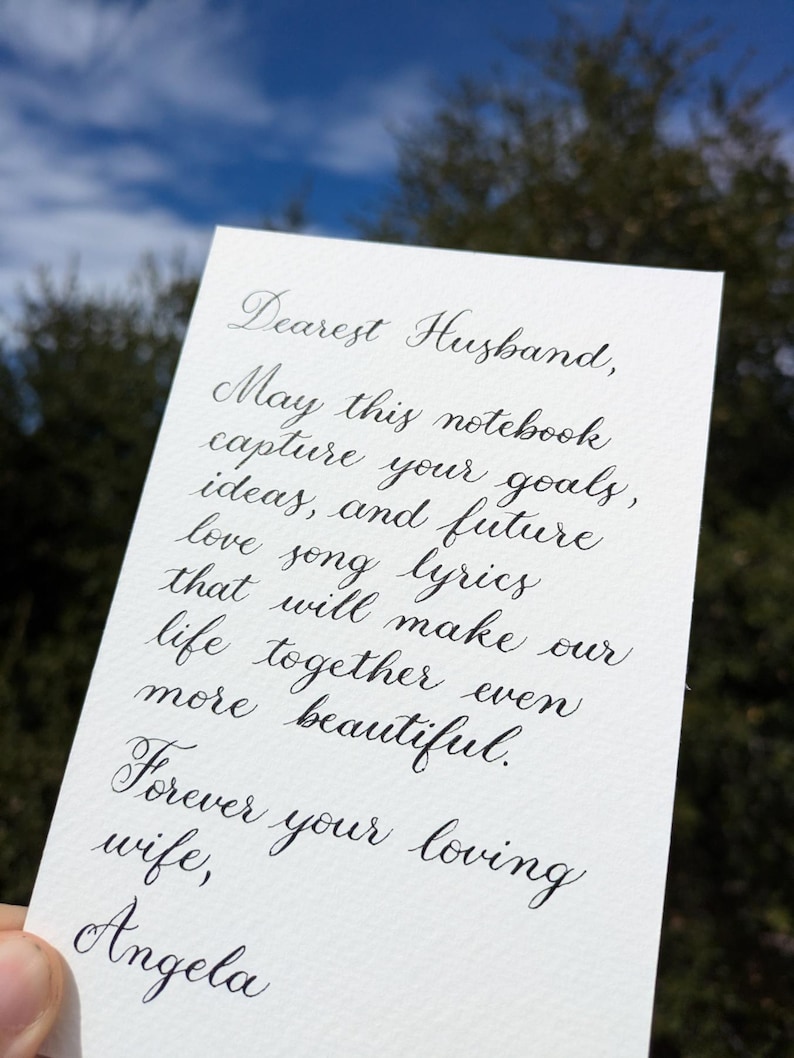 Dearest Husband,
May this notebook
capture your goals,
ideas, and future
love song lyrics
that will make our
life together even
more beautiful.
Forever your loving
wife,
Angela